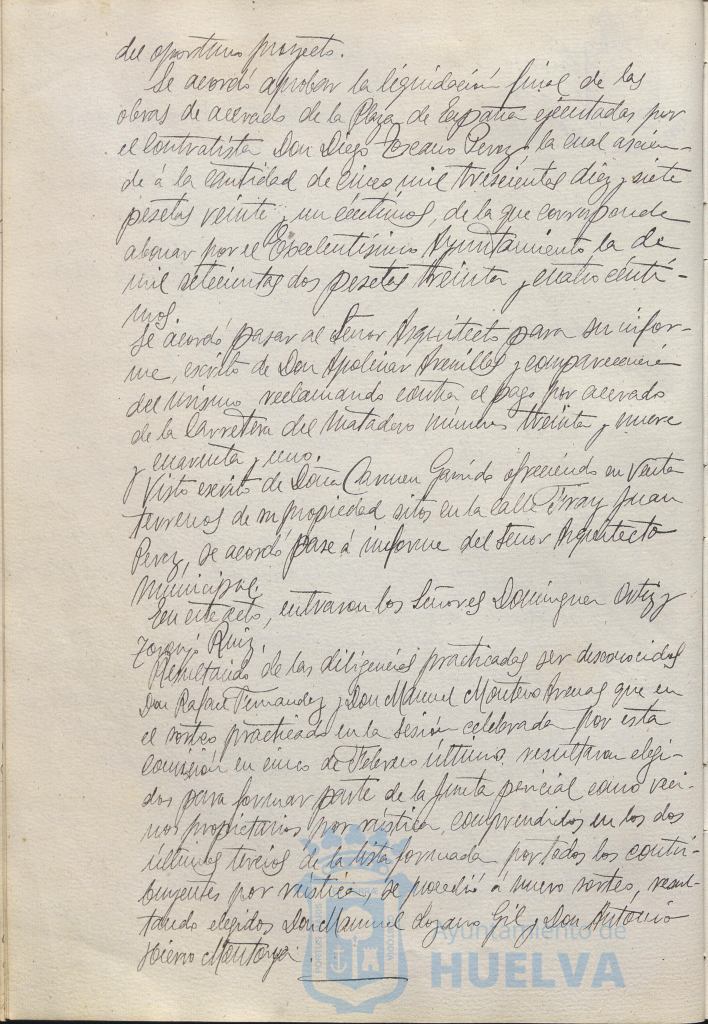 del oportuno proyecto.
Se acordó aprobar la liquidación final de las
obras de acerado de la Plaza de España ejecutadas por
el Contratista Don Diego Toscano Perez, la cual ascien-
de á la cantidad de cinco mil trescientas diez y siete
pesetas veinte y un céntimos, de la que corresponde
abonar por el Excelentísimo Ayuntamiento la de
mil setecientas dos pesetas treinta y cuatro cénti-
mos.
Se acordó pasar al Señor Arquitecto para su infor-
me, escrito de Don Apolinar Arenillas y comparecencia
del mismo reclamando contra el pago por acerado
de la Carretera del Matadero números treinta y nueve
y cuarenta y uno.
Visto escrito de Doña Carmen Garrido ofreciendo en venta
terrenos de su propiedad sitos en la calle Fray Juan
Perez, se acordó pase á informe del Señor Arquitecto
Municipal.
En este acto, entraron los Señores Dominguez Ortiz y
Ruiz.
Resultando de las diligencias practicadas ser desconocidos
Don Rafael Fernandez y Don Manuel Montero Arenas que en
el sorteo practicado en la sesión celebrada por esta
Comisión en cinco de Febrero último, resultaron elegi-
dos para formar parte de la Junta pericial como veci-
nos propietarios por rústica, comprendidos en los dos
últimos tercios de la lista formada por todos los contri-
buyentes por rústica, se procedió á nuevo sorteo, resul-
tando elegidos Don Manuel Lozano Gil y Don Antonio
Hierro Montoya.
Ayuntamiento de
HUELVA